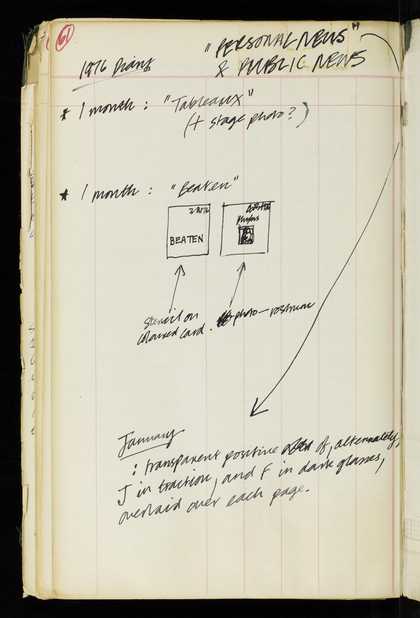 61
"PERSONAL NEWS"
& PUBLIC NEWS
1976 Diary
* 1 month : "Tableaux"
(+ stage photo?)
* 1 month : "Beaten"
BEATEN
stencil on
coloured card.
photo-postcard
January
: transparent positive of, alternately,
J in traction, and F in dark glasses,
overlaid over each page.